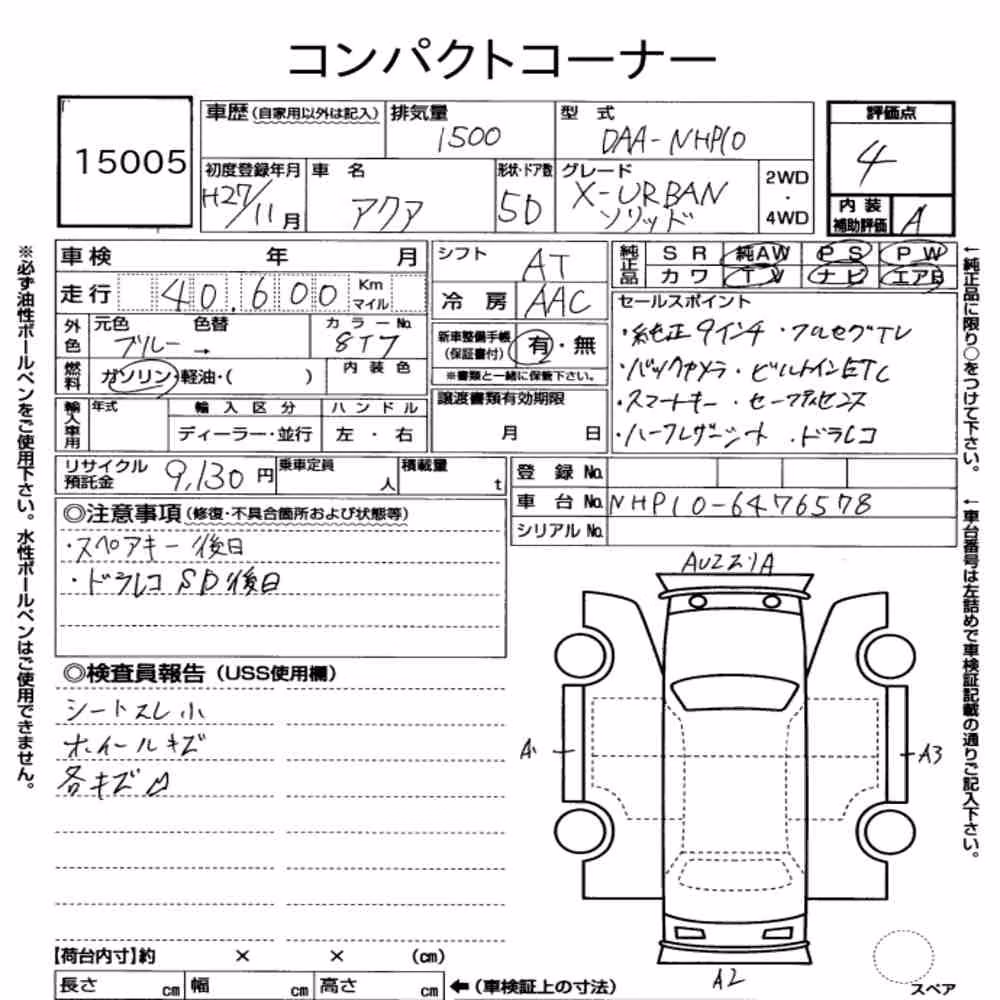 コンパクトコーナー
15005
車歴(自家用以外は記入)
排気量
1500
型 式
DAA-NHP10
評価点
4
初度登録年月
H27/11月
車 名
アクア
形状・ドア数
5D
グレード
X-URBAN
ソリッド
2WD
・
4WD
内 装
補助評価
A
車検 年 月
シフト
AT
純正品
SR 純AW PS PW
カワ TV ナビ エアB
走行 40,600 Km
マイル
冷 房
AAC
セールスポイント
・純正9インチ ・フルセグTV
・バックカメラ ・ビルトインETC
・スマートキー ・セーフティセンス
・ハーフレザーシート ・ドラレコ
外色
元色 色替
ブルー →
カラーNo.
8T7
新車整備手帳
(保証書付)
有・無
※書類と一緒に保管下さい。
燃料
ガソリン・軽油・( )
内 装 色
輸入車用
年式
輸 入 区 分
ディーラー・並行
ハ ン ド ル
左 ・ 右
譲渡書類有効期限
月 日
リサイクル
預託金
9,130 円
乗車定員
人
積載量
t
登 録 No.
車 台 No.
NHP10-6476578
シリアル No.
◎注意事項(修復・不具合箇所および状態等)
・スペアキー 後日
・ドラレコ SD後日
◎検査員報告(USS使用欄)
シートスレ小
ホイールキズ
各キズ凹
AUZZIA
A1
A3
A2
スペア
【荷台内寸】約 × × (cm)
長さ cm 幅 cm 高さ cm ←(車検証上の寸法)
※必ず油性ボールペンをご使用下さい。水性ボールペンはご使用できません。
←純正品に限り○をつけて下さい。
←車台番号は左詰めで車検証記載の通りご記入下さい。